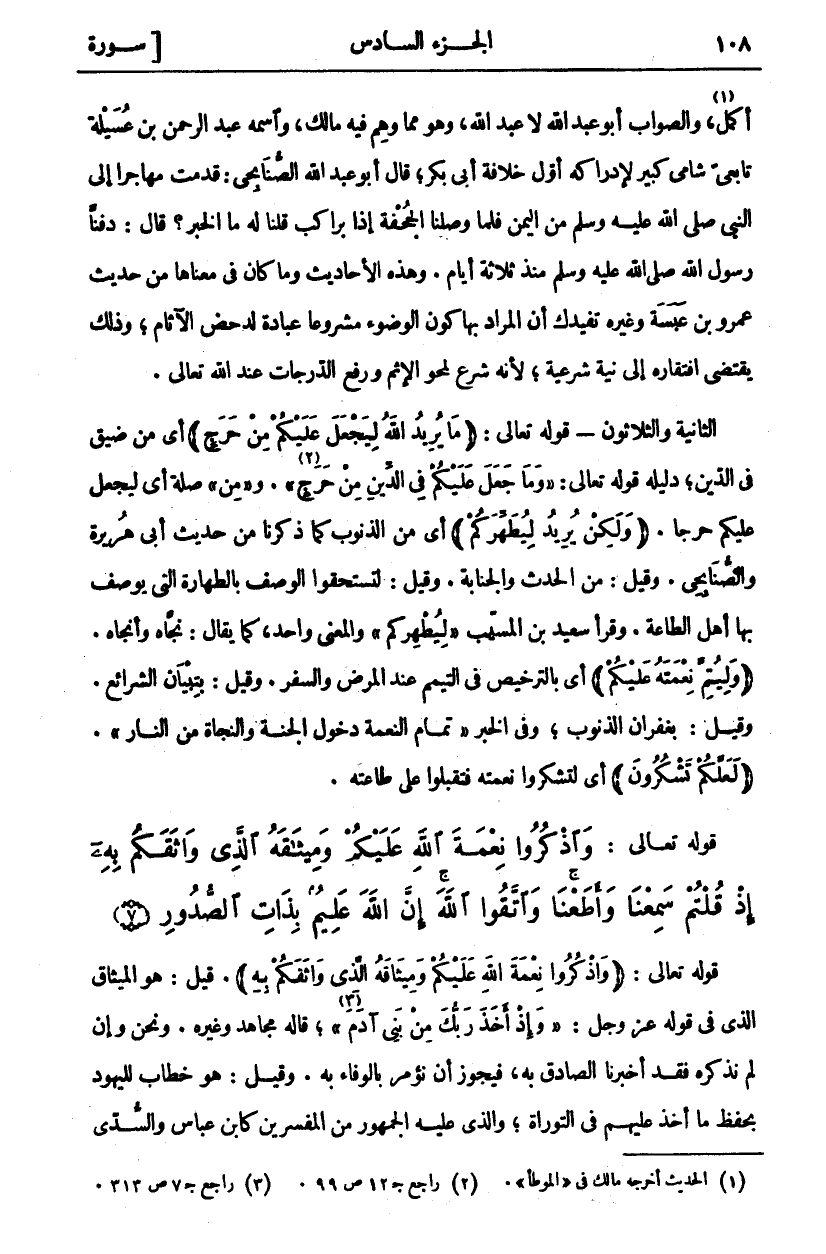 ١٠٨ الجزء السادس [ سورة
أكمل(١)، والصواب أبو عبد الله لا عبد الله، وهو مما وهم فيه مالك، وآسمه عبد الرحمن بن عُسَيْلة
تابعىّ شامى كبير لإدراكه أوّل خلافة أبى بكر؛ قال أبو عبد الله الصُّنَابِحِى: قدمت مهاجرا إلى
النبى صلى الله عليه وسلم من اليمن فلما وصلنا الجُحْفة إذا براكب قلنا له ما الخبر؟ قال: دفنّا
رسول الله صلى الله عليه وسلم منذ ثلاثة أيام. وهذه الأحاديث وما كان فى معناها من حديث
عمرو بن عَبَسَة وغيره تفيدك أن المراد بها كون الوضوء مشروعا عبادة لدحض الآثام؛ وذلك
يقتضى افتقاره إلى نية شرعية؛ لأنه شرع لمحو الإثم ورفع الدّرجات عند الله تعالى.
الثانية والثلاثون — قوله تعالى: ﴿مَا يُرِيدُ اللَّهُ لِيَجْعَلَ عَلَيْكُمْ مِنْ حَرَجٍ﴾ أى من ضيق
فى الدّين؛ دليله قوله تعالى: «وَمَا جَعَلَ عَلَيْكُمْ فِى الدِّينِ مِنْ حَرَجٍ(٢)». و«مِن» صلة أى ليجعل
عليكم حرجا. ﴿وَلَكِنْ يُرِيدُ لِيُطَهِّرَكُمْ﴾ أى من الذنوب كما ذكرنا من حديث أبى هُريرة
والصُّنَابِحِى. وقيل: من الحدث والجنابة. وقيل: لتستحقوا الوصف بالطهارة التى يوصف
بها أهل الطاعة. وقرأ سعيد بن المسيّب «لِيُطْهِركم» والمعنى واحد، كما يقال: نجّاه وأنجاه.
﴿وَلِيُتِمَّ نِعْمَتَهُ عَلَيْكُمْ﴾ أى بالترخيص فى التيمم عند المرض والسفر. وقيل: بِتِبْيَان الشرائع.
وقيل: بغفران الذنوب؛ وفى الخبر «تمام النعمة دخول الجنة والنجاة من النار».
﴿لَعَلَّكُمْ تَشْكُرُونَ﴾ أى لتشكروا نعمته فتقبلوا على طاعته.
قوله تعالى: وَٱذْكُرُوا نِعْمَةَ ٱللَّهِ عَلَيْكُمْ وَمِيثَٰقَهُ ٱلَّذِى وَاثَقَكُم بِهِۦٓ
إِذْ قُلْتُمْ سَمِعْنَا وَأَطَعْنَا ۖ وَٱتَّقُوا ٱللَّهَ ۚ إِنَّ ٱللَّهَ عَلِيمٌۢ بِذَاتِ ٱلصُّدُورِ (٧)
قوله تعالى: ﴿وَاذْكُرُوا نِعْمَةَ اللَّهِ عَلَيْكُمْ وَمِيثَاقَهُ الَّذِى وَاثَقَكُمْ بِهِ﴾. قيل: هو الميثاق
الذى فى قوله عز وجل: «وَإِذْ أَخَذَ رَبُّكَ مِنْ بَنِى آدَمَ(٣)»؛ قاله مجاهد وغيره. ونحن وإن
لم نذكره فقد أخبرنا الصادق به، فيجوز أن نؤمر بالوفاء به. وقيل: هو خطاب لليهود
بحفظ ما أخذ عليهم فى التوراة؛ والذى عليه الجمهور من المفسرين كابن عباس والسُّدّى
(١) الحديث أخرجه مالك فى «الموطأ». (٢) راجع جـ ١٢ ص ٩٩. (٣) راجع جـ ٧ ص ٣١٣.